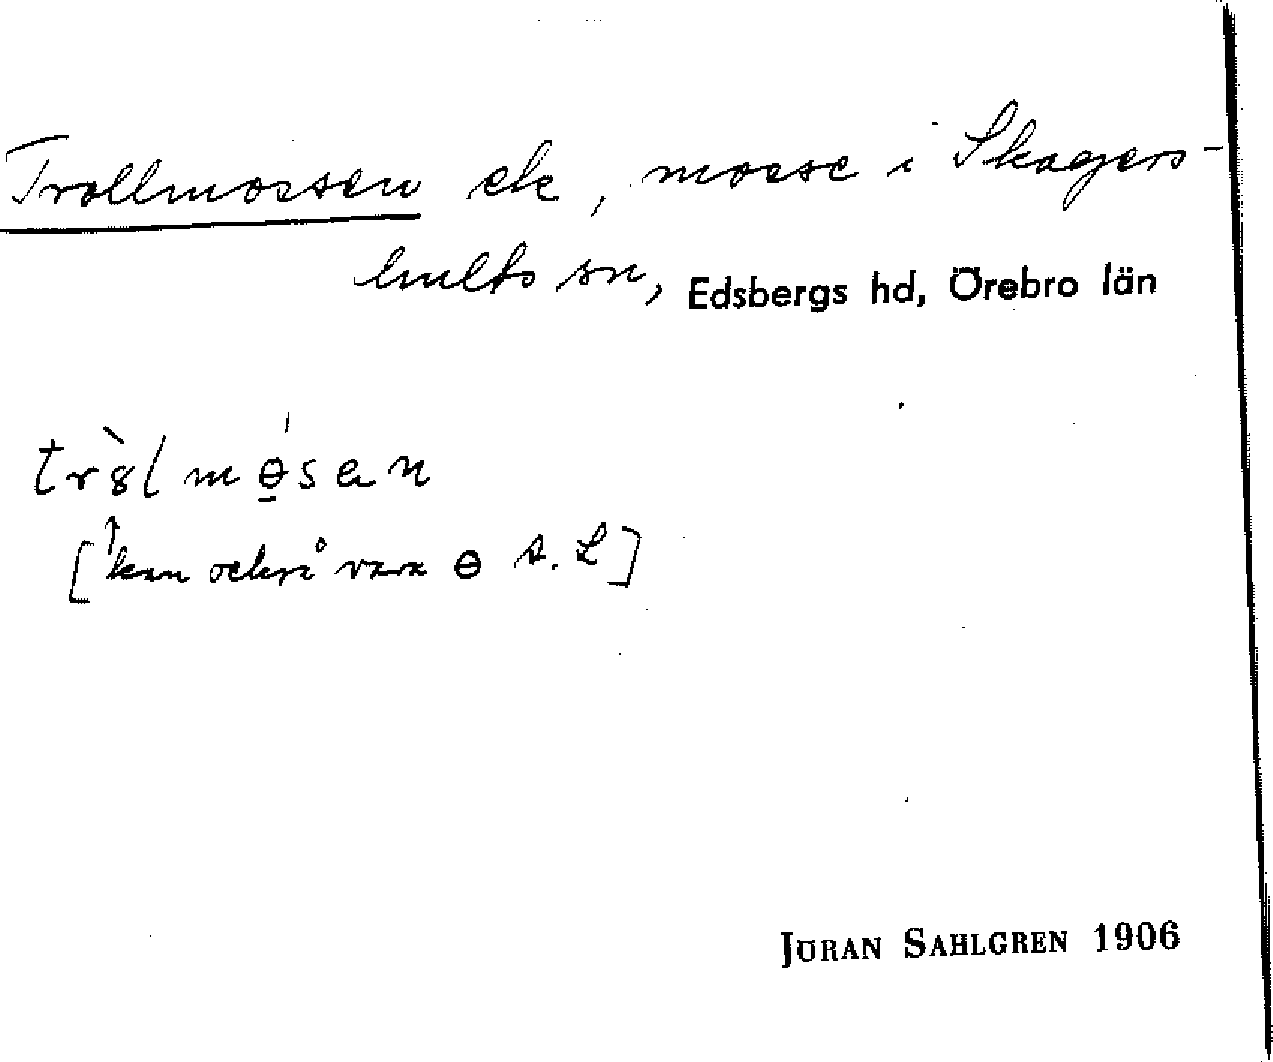 Trollmossen ek, mosse i Skagers-
hults sn, Edsbergs hd, Örebro län
tr8̀lmө̲́sen
[kan också vara ө A. L]
JÖRAN SAHLGREN 1906